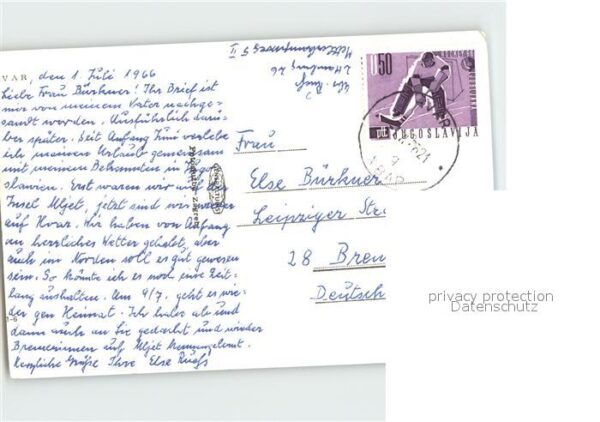 VAR, den 1 Juli 1966
Liebe Frau Bürkner! Ihr Brief ist
mir von meinem Vater nachge-
sandt worden. Ausführlich darü-
ber später. Seit Anfang Juni verlebe
ich meinen Urlaub gemeinsam
mit meinen Bekannten in Jugo-
slavien. Erst waren wir auf der
Insel Mljet, jetzt sind wir wieder
auf Hvar. Wir haben von Anfang
an herrliches Wetter gehabt, aber
auch im Norden soll es gut gewesen
sein. So könnte ich es noch eine Zeit-
lang aushalten. Am 9/7. geht es wie-
der gen Heimat. Ich habe ab und
dann auch an Sie gedacht und wieder
Bremerinnen auf Mljet kennengelernt.
Herzliche Grüße Ihre Else
2 Hamburg 26
II
0.50
JUGOSLAVIJA
HVAR
Frau
Else Bürkner
Leipziger Str
28 Brem
Deutsch
privacy protection
Datenschutz